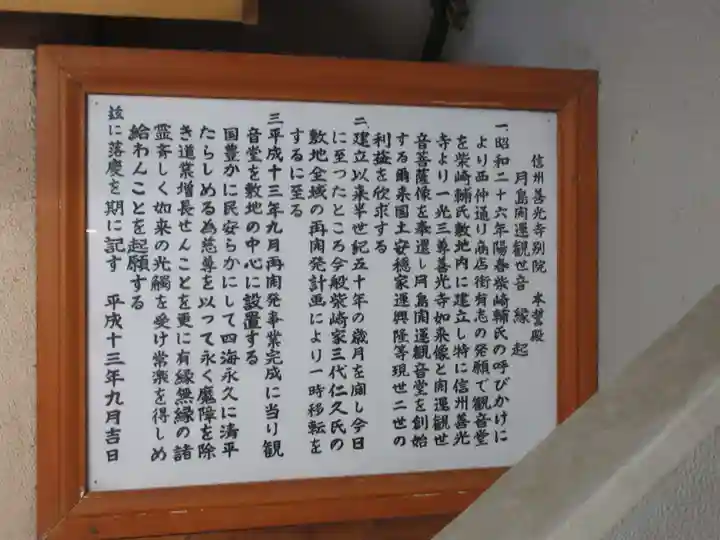 信州善光寺別院 本誓殿
月島開運観世音 縁起
一、昭和二十六年陽春柴崎輔氏の呼びかけに
より西仲通り商店街有志の発願で観音堂
を柴崎輔氏敷地内に建立し特に信州善光
寺より一光三尊善光寺如来像と開運観世
音菩薩像を奉遷し月島開運観音堂を創始
する爾来国土安穏家運興隆等現世二世の
利益を欣求する
二、建立以来半世紀五十年の歳月を閲し今日
に至ったところ今般柴崎家三代仁久氏の
敷地全域の再開発計画により一時移転を
するに至る
三平成十三年九月再開発事業完成に当り観
音堂を敷地の中心に設置する
国豊かに民安らかにして四海永久に清平
たらしめる為慈尊を以って永く魔障を除
き道業増長せんことを更に有縁無縁の諸
霊斉しく如来の光觸を受け常楽を得しめ
給わんことを起願する
茲に落慶を期に記す 平成十三年九月吉日